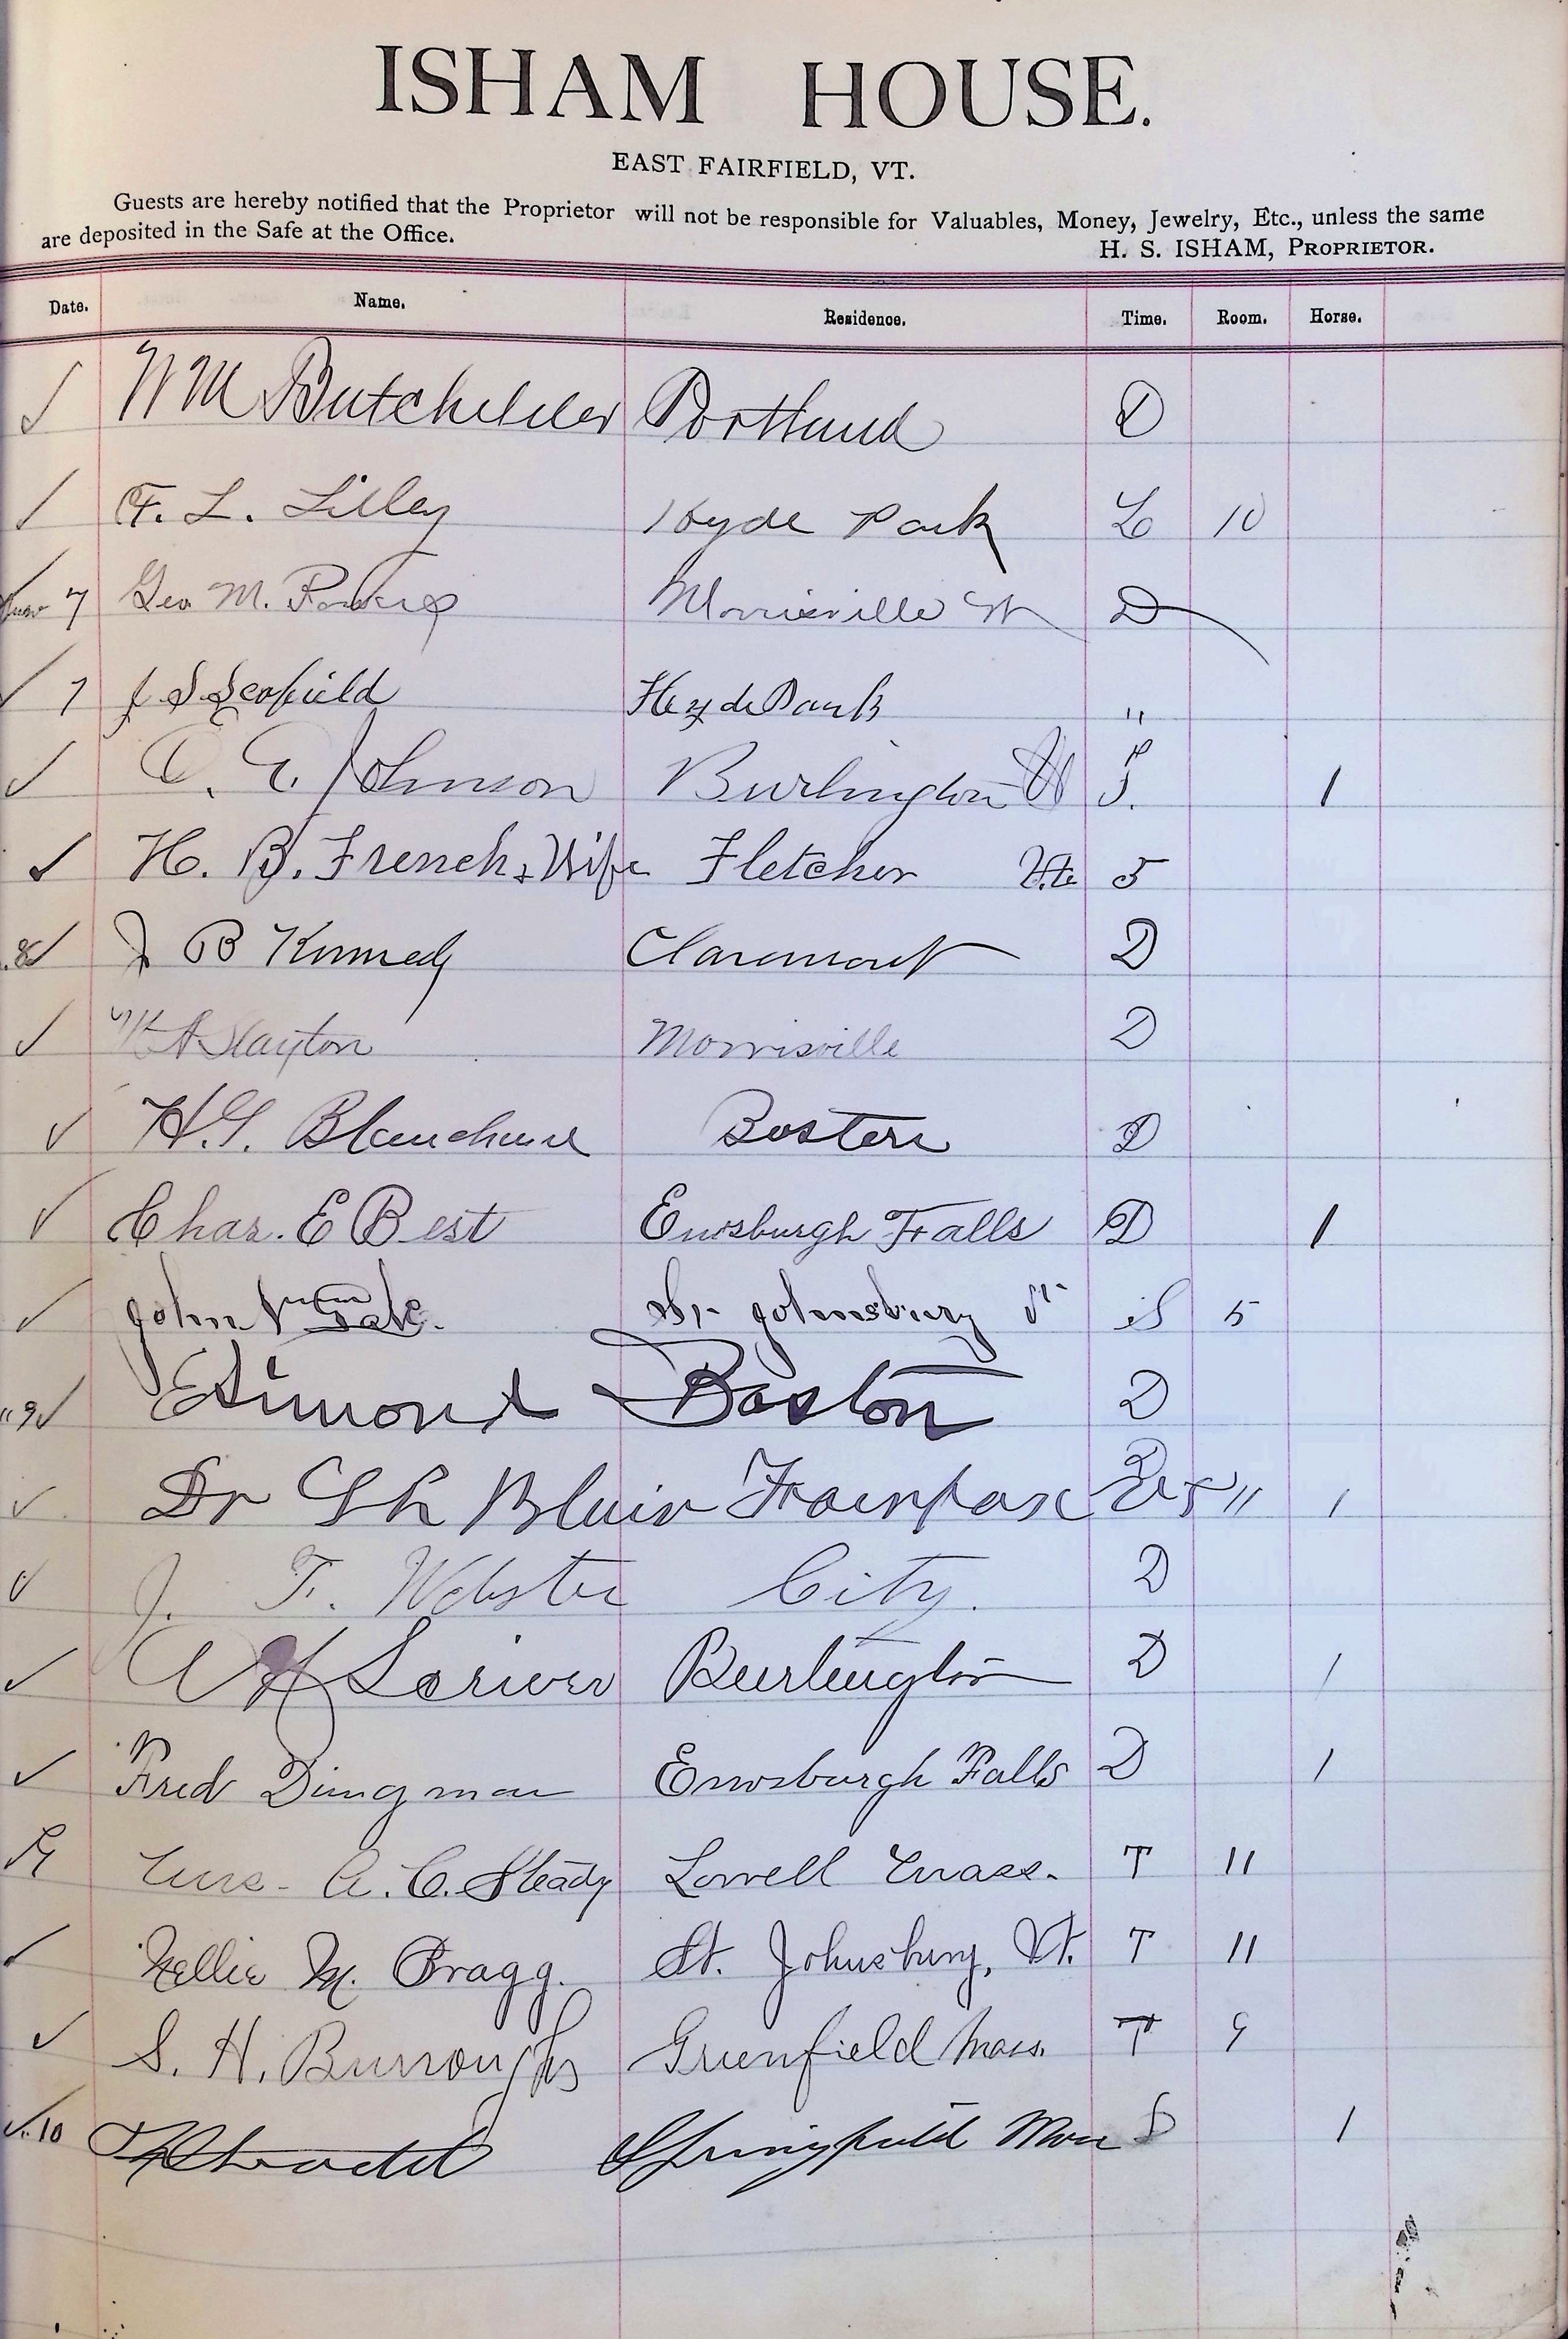 ISHAM HOUSE.
EAST FAIRFIELD, VT.
Guests are hereby notified that the Proprietor will not be responsible for Valuables, Money, Jewelry, Etc., unless the same
are deposited in the Safe at the Office.
H. S. ISHAM, PROPRIETOR.
Date. Name. Residence. Time. Room. Horse.
✓ W M Butchelder Portland D
✓ F. L. Lilley Hyde Park L 10
✓ 7 Geo M. Powers Morrisville Vt D
✓ 7 J S Scofield Hyde Park "
✓ C. E. Johnson Burlington Vt S. 1
✓ H. B. French & Wife Fletcher Vt. 5
8 ✓ J B Kennedy Claremont D
✓ Slayton Morrisville D
✓ H. G. Blanchard Boston D
✓ Chas. E Best Enosburgh Falls D 1
✓ John Gale. St. Johnsbury Vt S 5
" 9 ✓ Edmond Boston D
✓ Dr Blair Fairfax " 1
✓ J. F. Webster City. D
✓ A H Scriver Burlington D 1
✓ Fred Dingman Enosburgh Falls D 1
Mrs. A. C. Steady Lowell Mass. T 11
✓ Nellie M. Bragg. St. Johnsbury, Vt. T 11
✓ S. H. Burroughs Greenfield Mass. T 9
✓ 10 Springfield Mass 1